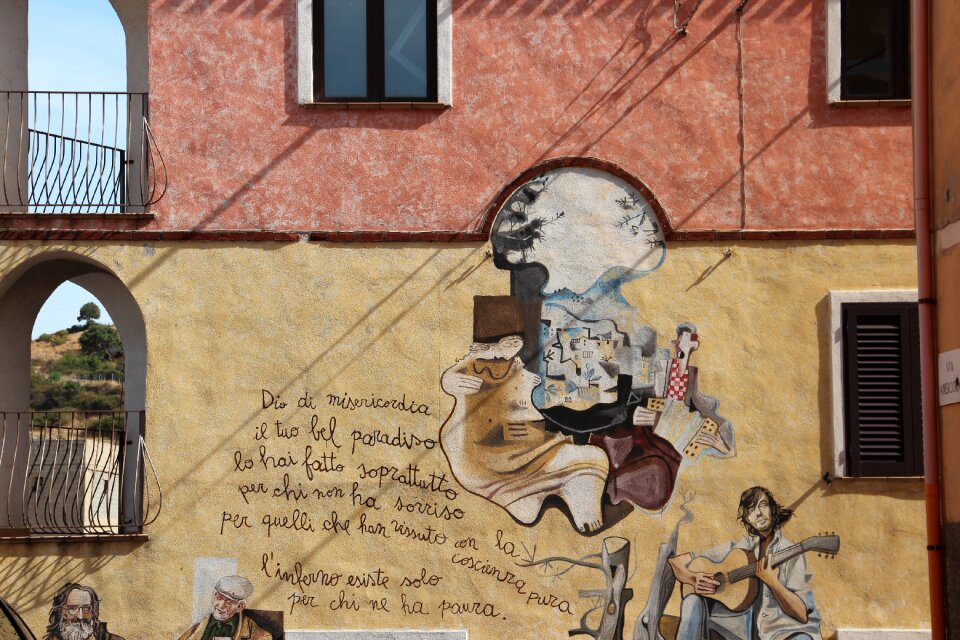 Dio di misericordia
il tuo bel paradiso
lo hai fatto soprattutto
per chi non ha sorriso
per quelli che han vissuto con la
coscienza pura
l'inferno esiste solo
per chi ne ha paura.
VIA